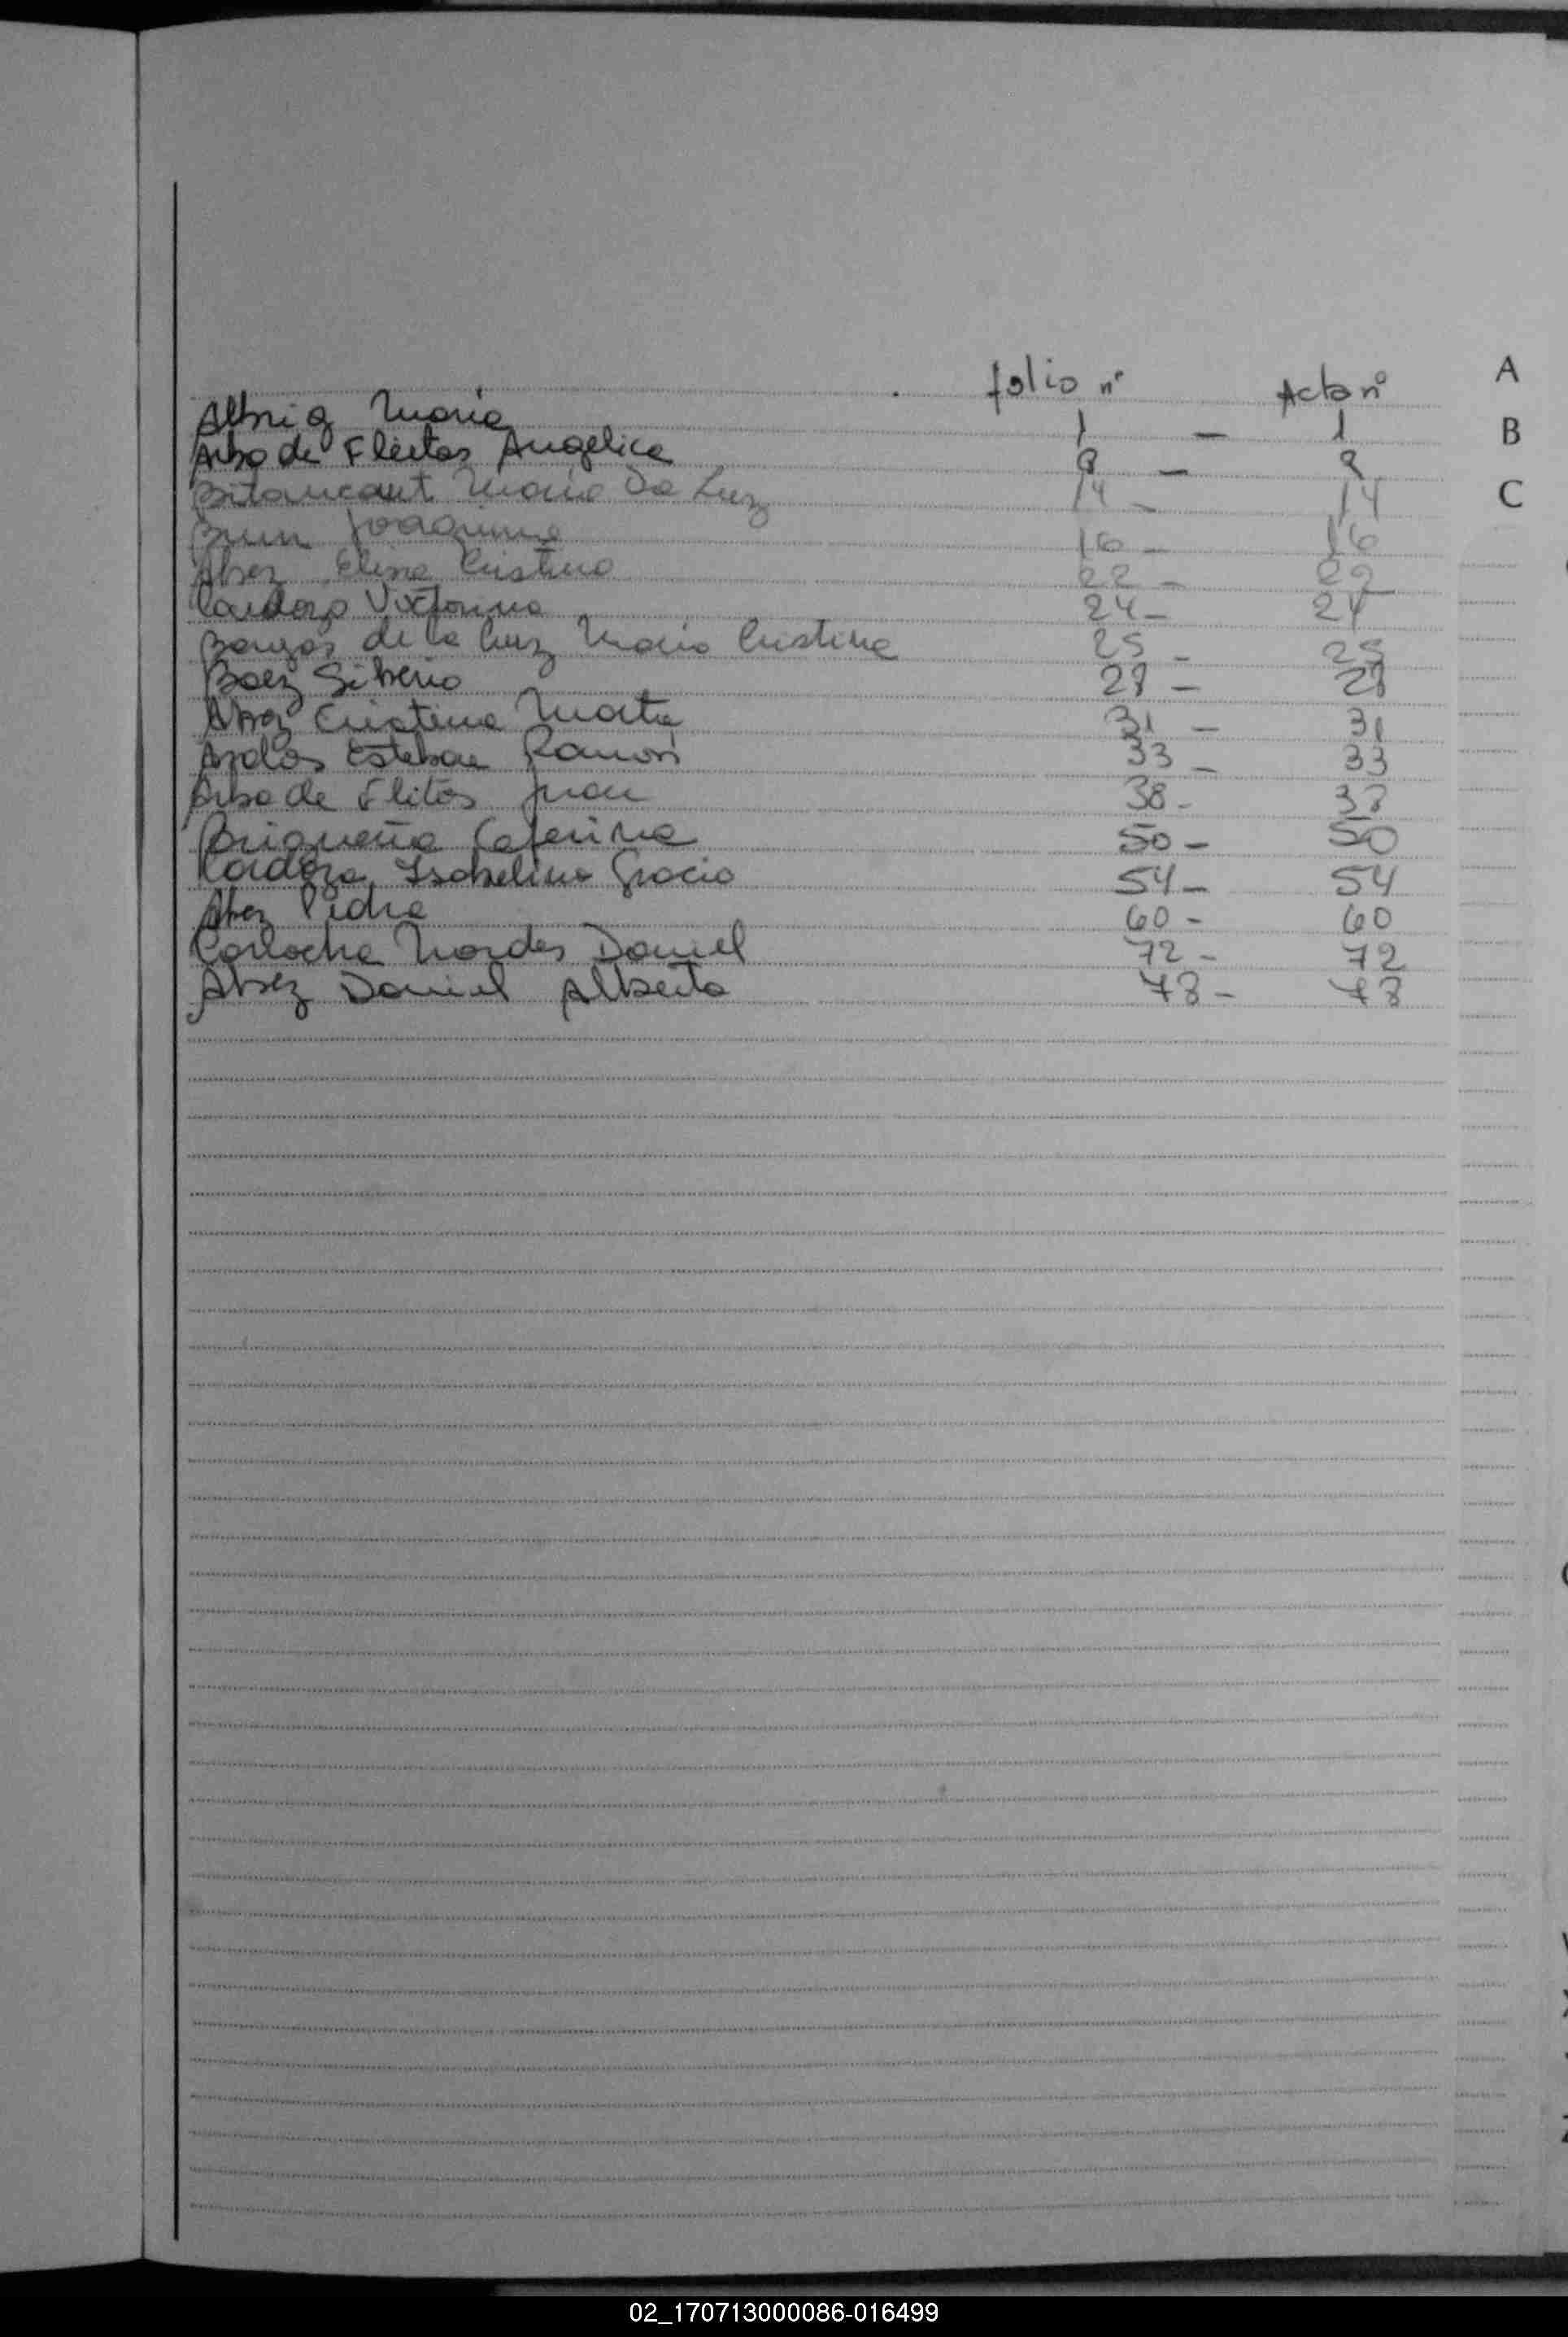 folio nº Acta nº A
Albrig María 1 — 1 B
Arbo de Fleitas Angelica 9 — 9
Bitancourt María Da Luz 14 - 14 C
Brun Joaquina 16 - 16
Abez Elina Cristina 22 - 22
Cardozo Victorina 24 - 24
de la Cruz María Cristina 25 - 25
Baez Siberio 28 - 28
Abez Cristina Marta 31 - 31
Esteban Ramón 33 - 33
Arbo de Flitas Juan 38 - 38
Brigueña Ceferina 50 - 50
Cardozo Isabelino Gracio 54 - 54
Abez Pedro 60 - 60
Daniel 72 - 72
Abez Daniel Alberto 78 - 78
02_170713000086-016499